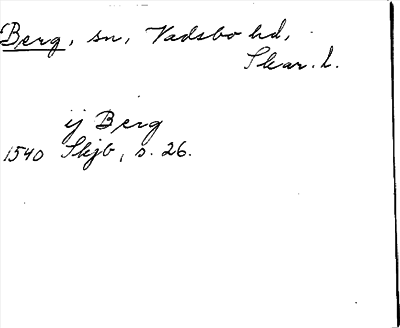 Berg, sn, Vadsbo hd,
Skar. l.
ij Berg
1540 Skjb, s. 26.